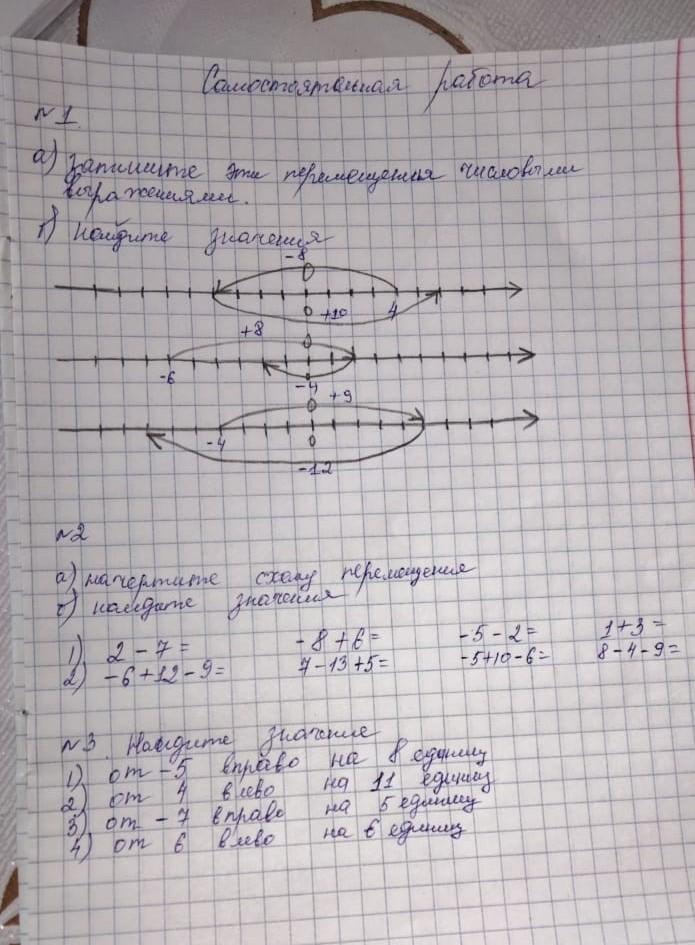 Самостоятельная работа
№1.
а) Запишите эти перемещения числовыми
выражениями.
б) Найдите значения
-8
0
0 +10 4
+8 0
-6 -4
0 +9
-4 0
-12
№2
а) начертите схему перемещения
б) найдите значения
1) 2 - 7 = -8 + 6 = -5 - 2 = 1 + 3 =
2) -6 + 12 - 9 = 7 - 13 + 5 = -5 + 10 - 6 = 8 - 4 - 9 =
№3. Найдите значение
1) от -5 вправо на 8 единиц
2) от 4 влево на 11 единиц
3) от -7 вправо на 5 единиц
4) от 6 влево на 6 единиц